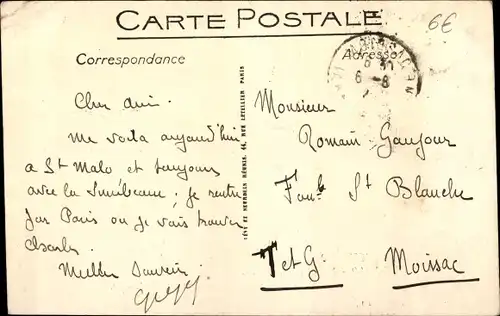 CARTE POSTALE
6€
Correspondance
Adresse
Cher ami.
Me voilà aujourd'hui
a St Malo et toujours
avec la ; je rentre
par Paris ou je vais trouver
Charles
Meilleur Souvenir
LÉVY ET NEURDEIN RÉUNIS, 44, RUE LETELLIER, PARIS
8 30
6 - 8
Monsieur
Romain Gaujour
Faub. St Blanche
T et G. Moissac